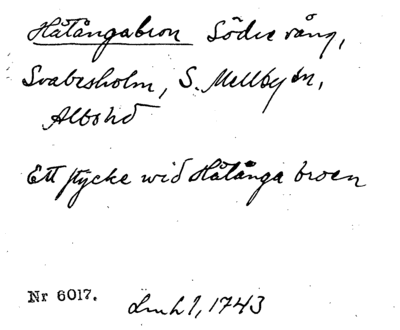 Håtångabron Södre vång,
Svabesholm, S. Mellby sn,
Albo hd
Ett stycke wid Håtånga broen
Nr 6017.
Lmh 1, 1743